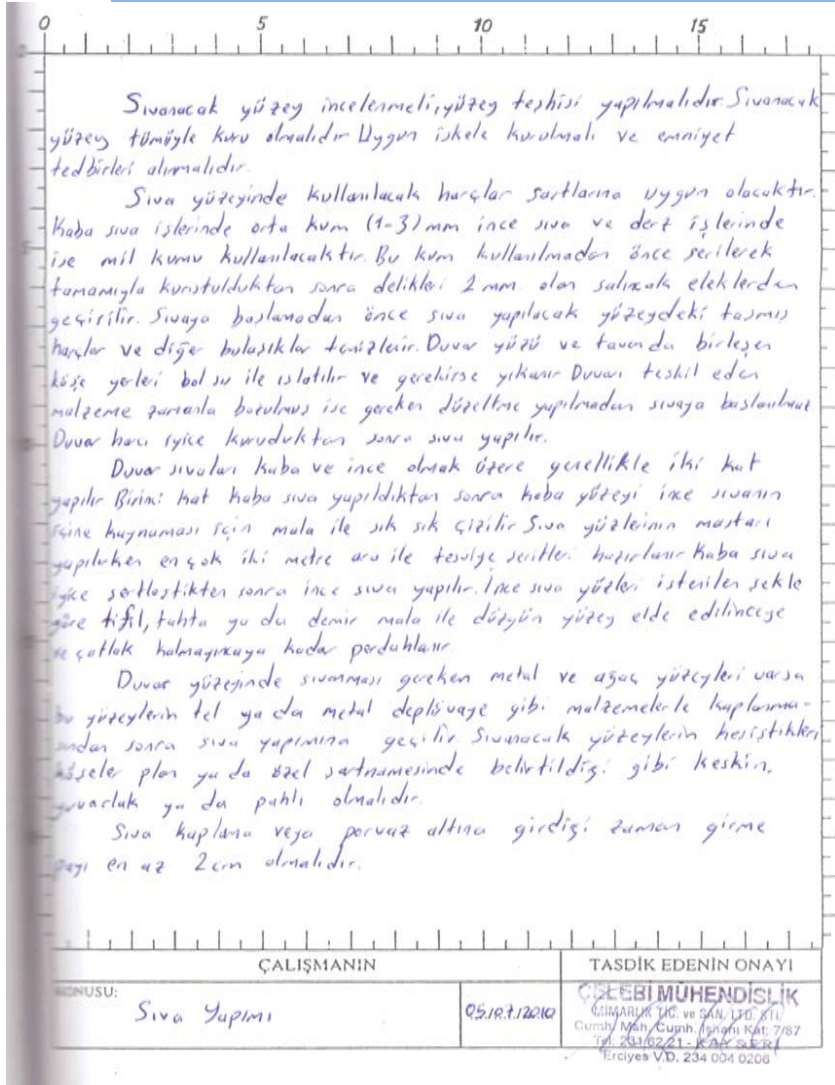 0 5 10 15
Sıvanacak yüzey incelenmeli, yüzey teşhisi yapılmalıdır. Sıvanacak
yüzey tümüyle kuru olmalıdır. Uygun iskele kurulmalı ve emniyet
tedbirleri alınmalıdır.
Sıva yüzeyinde kullanılacak harçlar şartlarına uygun olacaktır.
Kaba sıva işlerinde orta kum (1-3) mm ince sıva ve derz işlerinde
ise mil kumu kullanılacaktır. Bu kum kullanılmadan önce serilerek
tamamıyla kurutulduktan sonra delikleri 2 mm. olan salıncak eleklerden
geçirilir. Sıvaya başlamadan önce sıva yapılacak yüzeydeki taşmış
harçlar ve diğer bulaşıklar temizlenir. Duvar yüzü ve tavanda birleşen
köşe yerleri bol su ile ıslatılır ve gerekirse yıkanır. Duvarı teşkil eden
malzeme zamanla bozulmuş ise gereken düzeltme yapılmadan sıvaya başlanılmaz
Duvar harcı iyice kuruduktan sonra sıva yapılır.
Duvar sıvaları kaba ve ince olmak üzere genellikle iki kat
yapılır. Birinci kat kaba sıva yapıldıktan sonra kaba yüzeyi ince sıvanın
içine kaynaması için mala ile sık sık çizilir. Sıva yüzlerinin mastarı
yapılırken en çok iki metre ara ile tesviye şeritleri hazırlanır. Kaba sıva
iyice sertleştikten sonra ince sıva yapılır. İnce sıva yüzleri istenilen şekle
göre tifil, tahta ya da demir mala ile düzgün yüzey elde edilinceye
ve çatlak kalmayıncaya kadar perdahlanır.
Duvar yüzeyinde sıvanması gereken metal ve ağaç yüzeyleri varsa
bu yüzeylerin tel ya da metal deplövaye gibi malzemelerle kaplanma-
sından sonra sıva yapımına geçilir. Sıvanacak yüzeylerin kesiştikleri
köşeler plan ya da özel şartnamesinde belirtildiği gibi keskin,
yuvarlak ya da pahlı olmalıdır.
Sıva kaplama veya pervaz altına girdiği zaman girme
payı en az 2 cm olmalıdır.
ÇALIŞMANIN TASDİK EDENİN ONAYI
KONUSU: Sıva Yapımı 05/07/2010
ÇELEBİ MÜHENDİSLİK
MİMARLIK TİC. ve SAN. LTD. ŞTİ.
Cumh. Mah. Cumh. İşhanı Kat: 7/87
Tel: 231 62 21 - KAYSERİ
Erciyes V.D. 234 004 0206